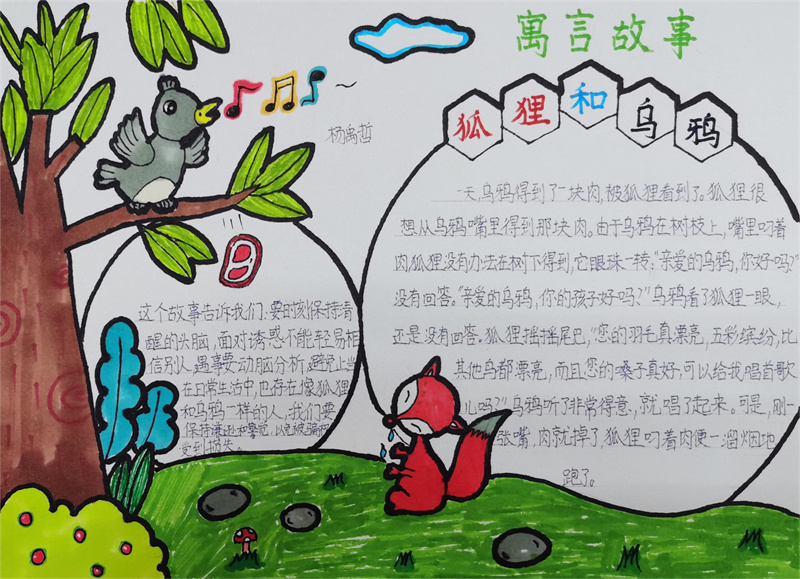 寓言故事
狐狸和乌鸦
杨禹哲
一天,乌鸦得到了一块肉,被狐狸看到了。狐狸很
想从乌鸦嘴里得到那块肉。由于乌鸦在树枝上,嘴里叼着
肉,狐狸没有办法在树下得到,它眼珠一转:"亲爱的乌鸦,你好吗?"
没有回答。"亲爱的乌鸦,你的孩子好吗?"乌鸦看了狐狸一眼,
还是没有回答。狐狸摇摇尾巴,"您的羽毛真漂亮,五彩缤纷,比
其他鸟都漂亮,而且,您的嗓子真好,可以给我唱首歌
儿吗?"乌鸦听了非常得意,就唱了起来。可是,刚一
张嘴,肉就掉了,狐狸叼着肉便一溜烟地
跑了。
这个故事告诉我们:要时刻保持清
醒的头脑,面对诱惑不能轻易相
信别人,遇事要动脑分析,避免上当
在日常生活中,也存在像狐狸
和乌鸦一样的人,我们要
保持谦逊和警觉,以免被骗
受到损失。